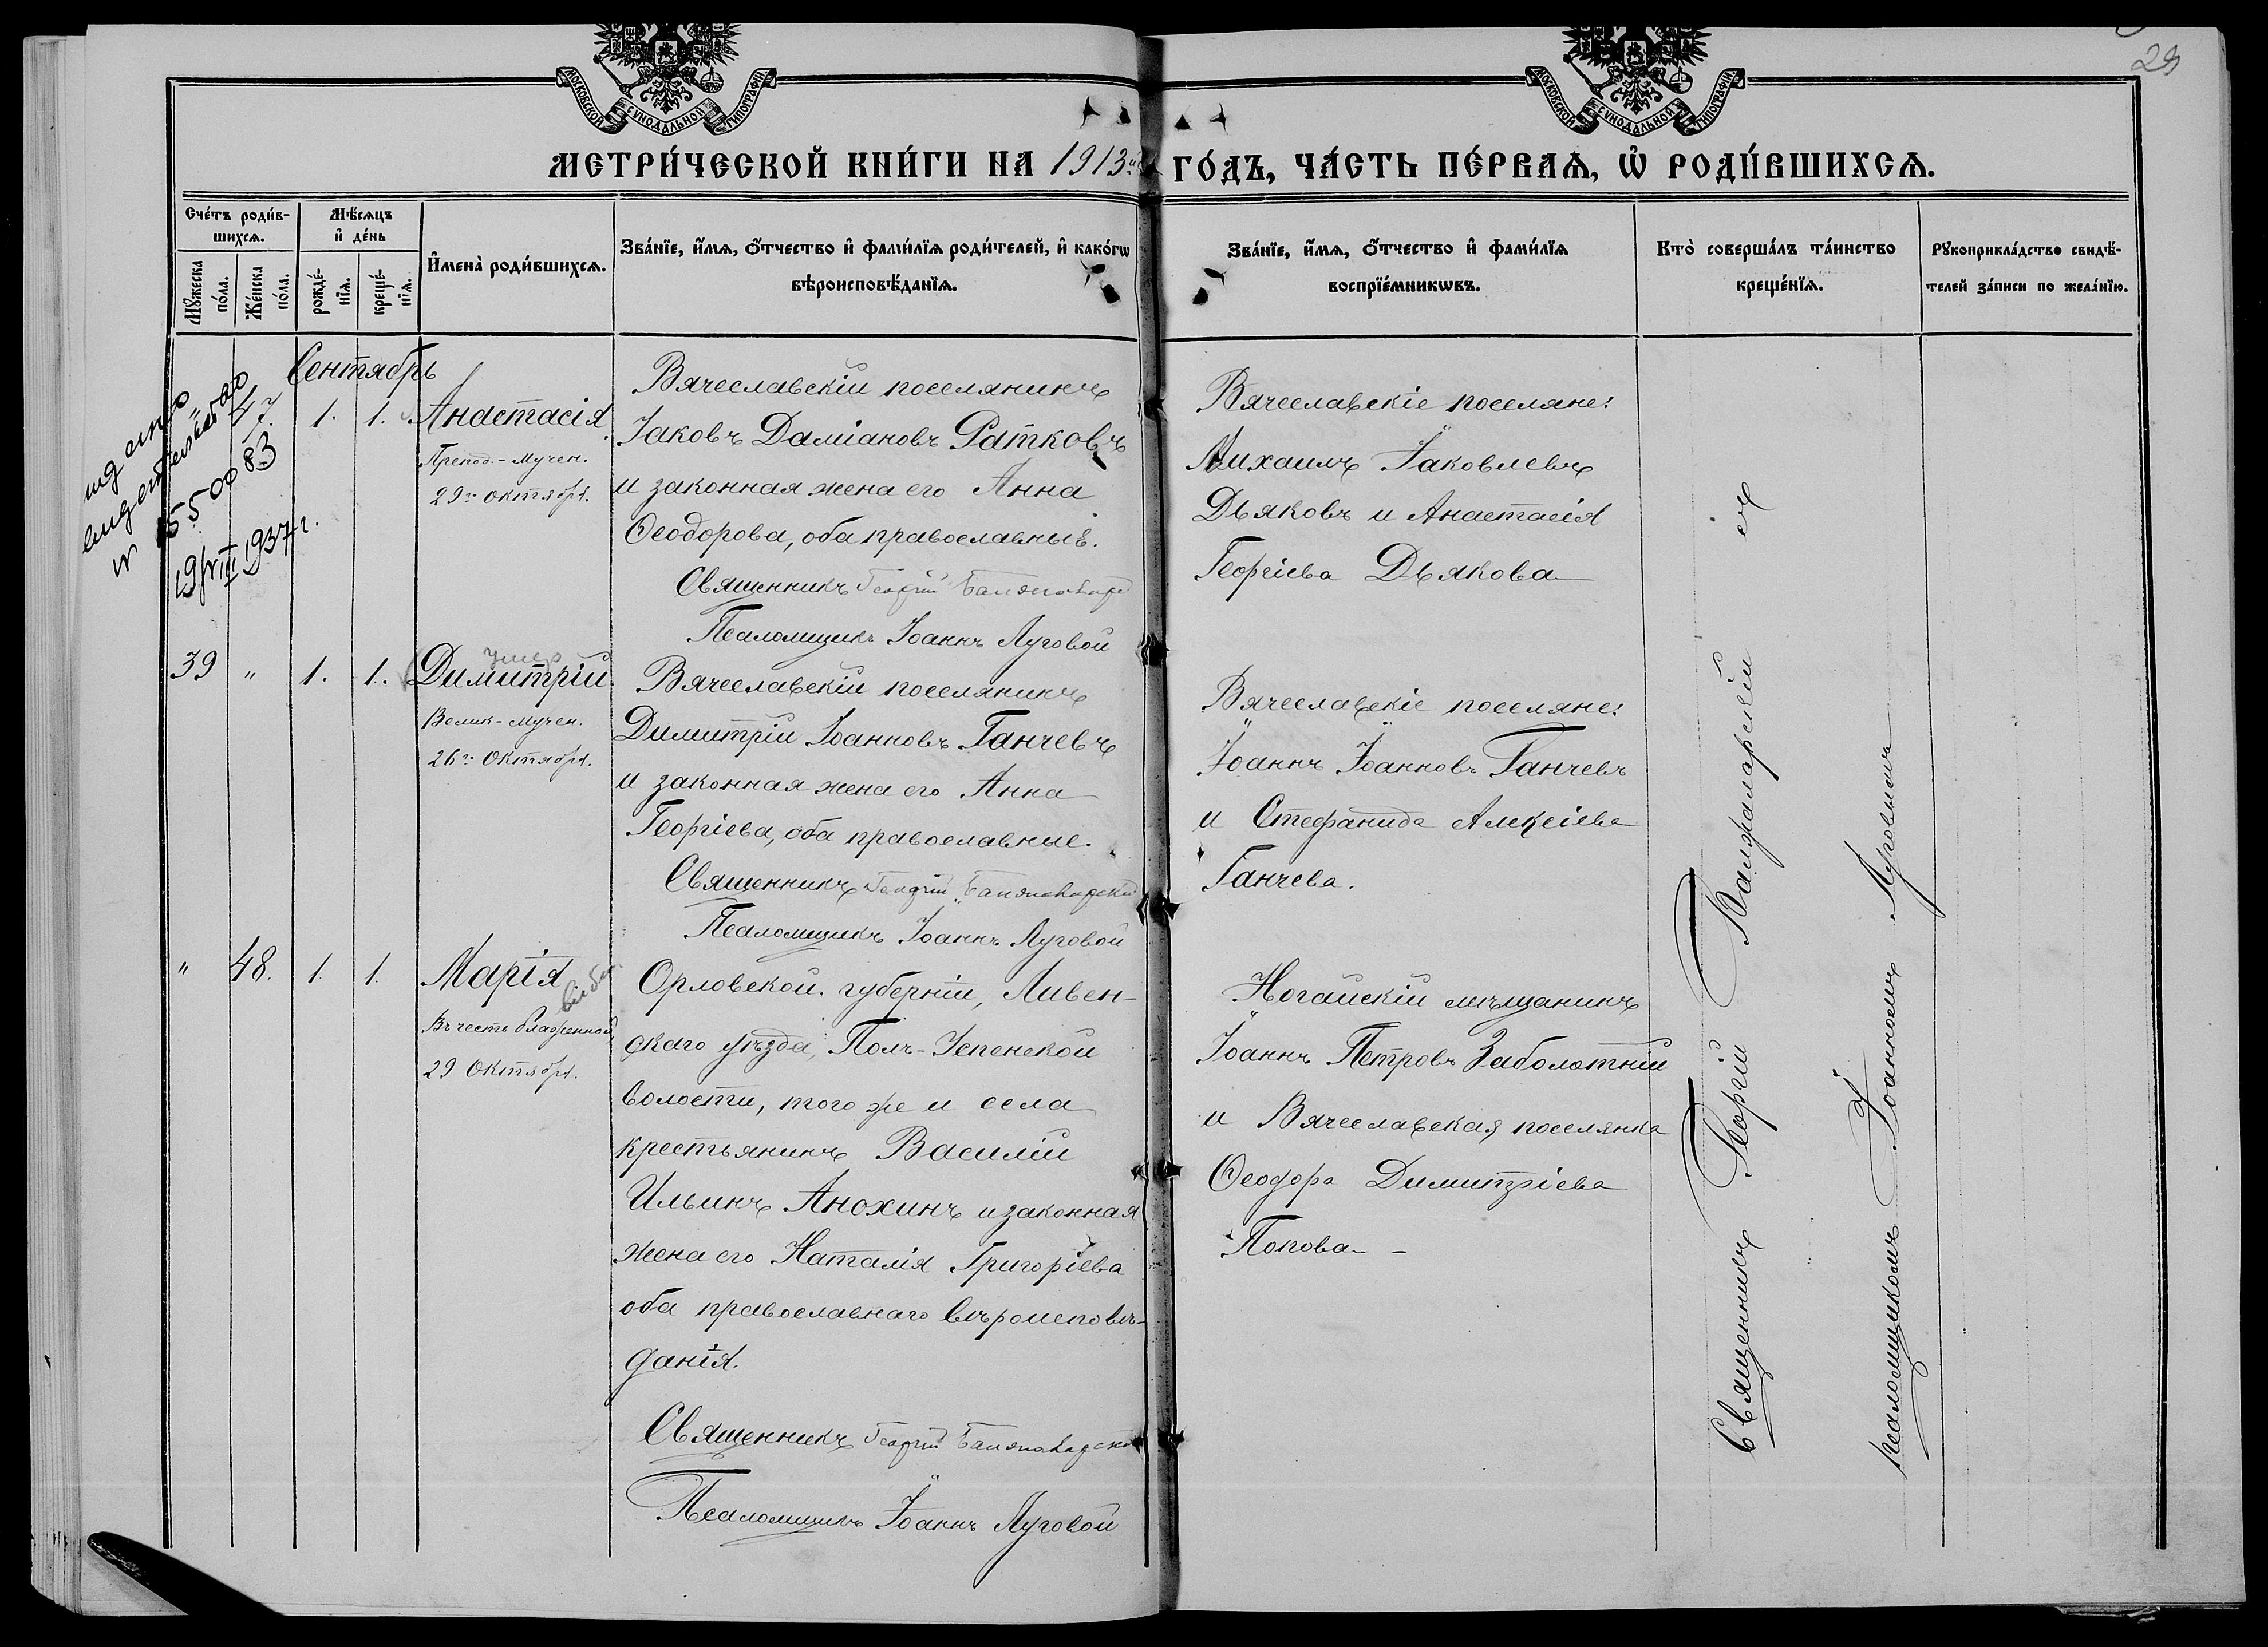 29
МОСКОВСКОЙ СѴНОДАЛЬНОЙ ТИПОГРАФІИ
МОСКОВСКОЙ СѴНОДАЛЬНОЙ ТИПОГРАФІИ
МЕТРИ́ЧЕСКОЙ КНИ́ГИ НА 1913й ГО́ДЪ, ЧА́СТЬ ПЕ́РВАѦ, Ѡ҆ РОДИ́ВШИХСѦ.
Сче́тъ роди́в-
шихсѧ.
Мꙋ́жеска
по́ла.
Же́нска
по́ла.
Мѣ́сѧцъ
и҆ де́нь
рожде́-
нїѧ.
креще́-
нїѧ.
И҆мена̀ роди́вшихсѧ.
Зва́нїе, и҆́мѧ, ѻ҆́тчество и҆ фами́лїѧ роди́телей, и҆ како́гѡ
вѣроисповѣ́данїѧ.
Зва́нїе, и҆́мѧ, ѻ҆́тчество и҆ фами́лїѧ
воспрїе́мникѡвъ.
Кто̀ соверша́лъ та́инство
креще́нїѧ.
Рꙋкоприкла́дство свидѣ́-
телей за́писи по жела́нїю.
Сентябрь
" 47. 1. 1. Анастасія
Препод.-Мучен.
29го Октября.
№ 550083
19/VIII 1937 г.
Вячеславскій поселянинъ
Іаковъ Даміановъ Ратковъ
и законная жена его Анна
Ѳеодорова, оба православные.
Священникъ Георгій
Псаломщикъ Іоаннъ Луговой
Вячеславскіе поселяне:
Михаилъ Іаковлевъ
Дьяковъ и Анастасія
Георгіева Дьякова
39 " 1. 1. Димитрій
умер
Велик-мучен.
26го Октября.
Вячеславскій поселянинъ
Димитрій Іоанновъ Ганчевъ
и законная жена его Анна
Георгіева, оба православные.
Священникъ Георгій
Псаломщикъ Іоаннъ Луговой
Вячеславскіе поселяне:
Іоаннъ Іоанновъ Ганчевъ
и Стефанида Алексіева
Ганчева.
" 48. 1. 1. Марія
Въ честь блаженной
29 Октября.
Орловской губерніи, Ливен-
скаго уѣзда,
волости, того же и села
крестьянинъ Василій
Ильинъ Анохинъ и законная
жена его Наталія Григоріева
оба православнаго вѣроисповѣ-
данія.
Священникъ Георгій
Псаломщикъ Іоаннъ Луговой
Ногайскій мѣщанинъ
Іоаннъ Петровъ Заболотній
и Вячеславская поселянка
Ѳеодора Димитріева
Попова
Священникъ Георгій
съ
псаломщикомъ Іоанномъ Луговымъ